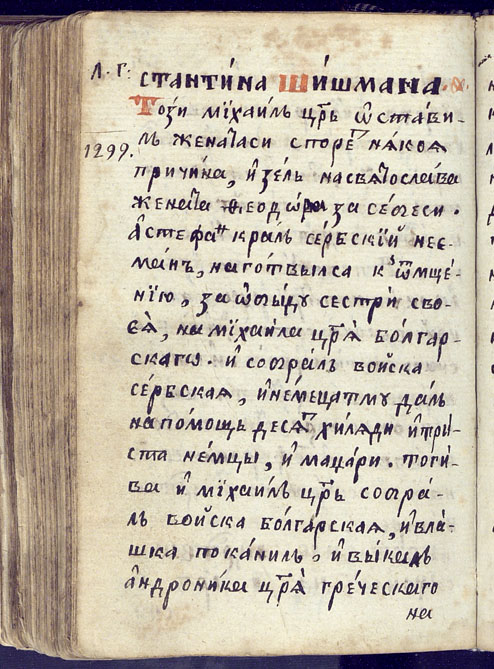 Л. Г:
стантíна Шíшмана.
Този мїхаилъ цр҃ь ѡ҆ста́ви-
1299.
лъ жена́таси споре́д нѧкоѧ
причи́на, и҆ зе́лъ на свѧ́тослава
жена́та ѳеодѡ́ра за се́беси.
А҆ стефа́н кра́лъ се́рбскїй нее-
ма́нъ, наготвился к ѿмще́-
нїю, за ѡ҆би́ду сестри́ сво-
еѧ̀, на мїхаи́ла цр҃ѧ̀ бо́лгар-
скагѡ. и҆ собра́лъ войска
се́рбскаѧ, и҆ не́мецатму да́лъ
на по́мощь десѧ́т хи́лѧди и҆ три́-
ста не́мцы, и҆ маџа́ри. тоги́-
ва и҆ мїхаи́лъ цр҃ь собра́-
лъ войска бо́лгарскаѧ, и҆ вла́-
шка пока́нилъ, и҆ вы́калъ
а҆ндрони́ка цр҃ѧ̀ гре́ческаго
на